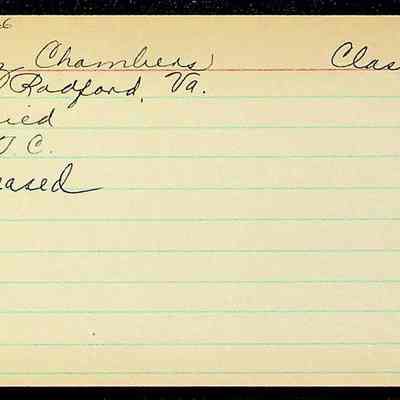 Chambers Clas
Radford, Va.
ied
J. C.
eased